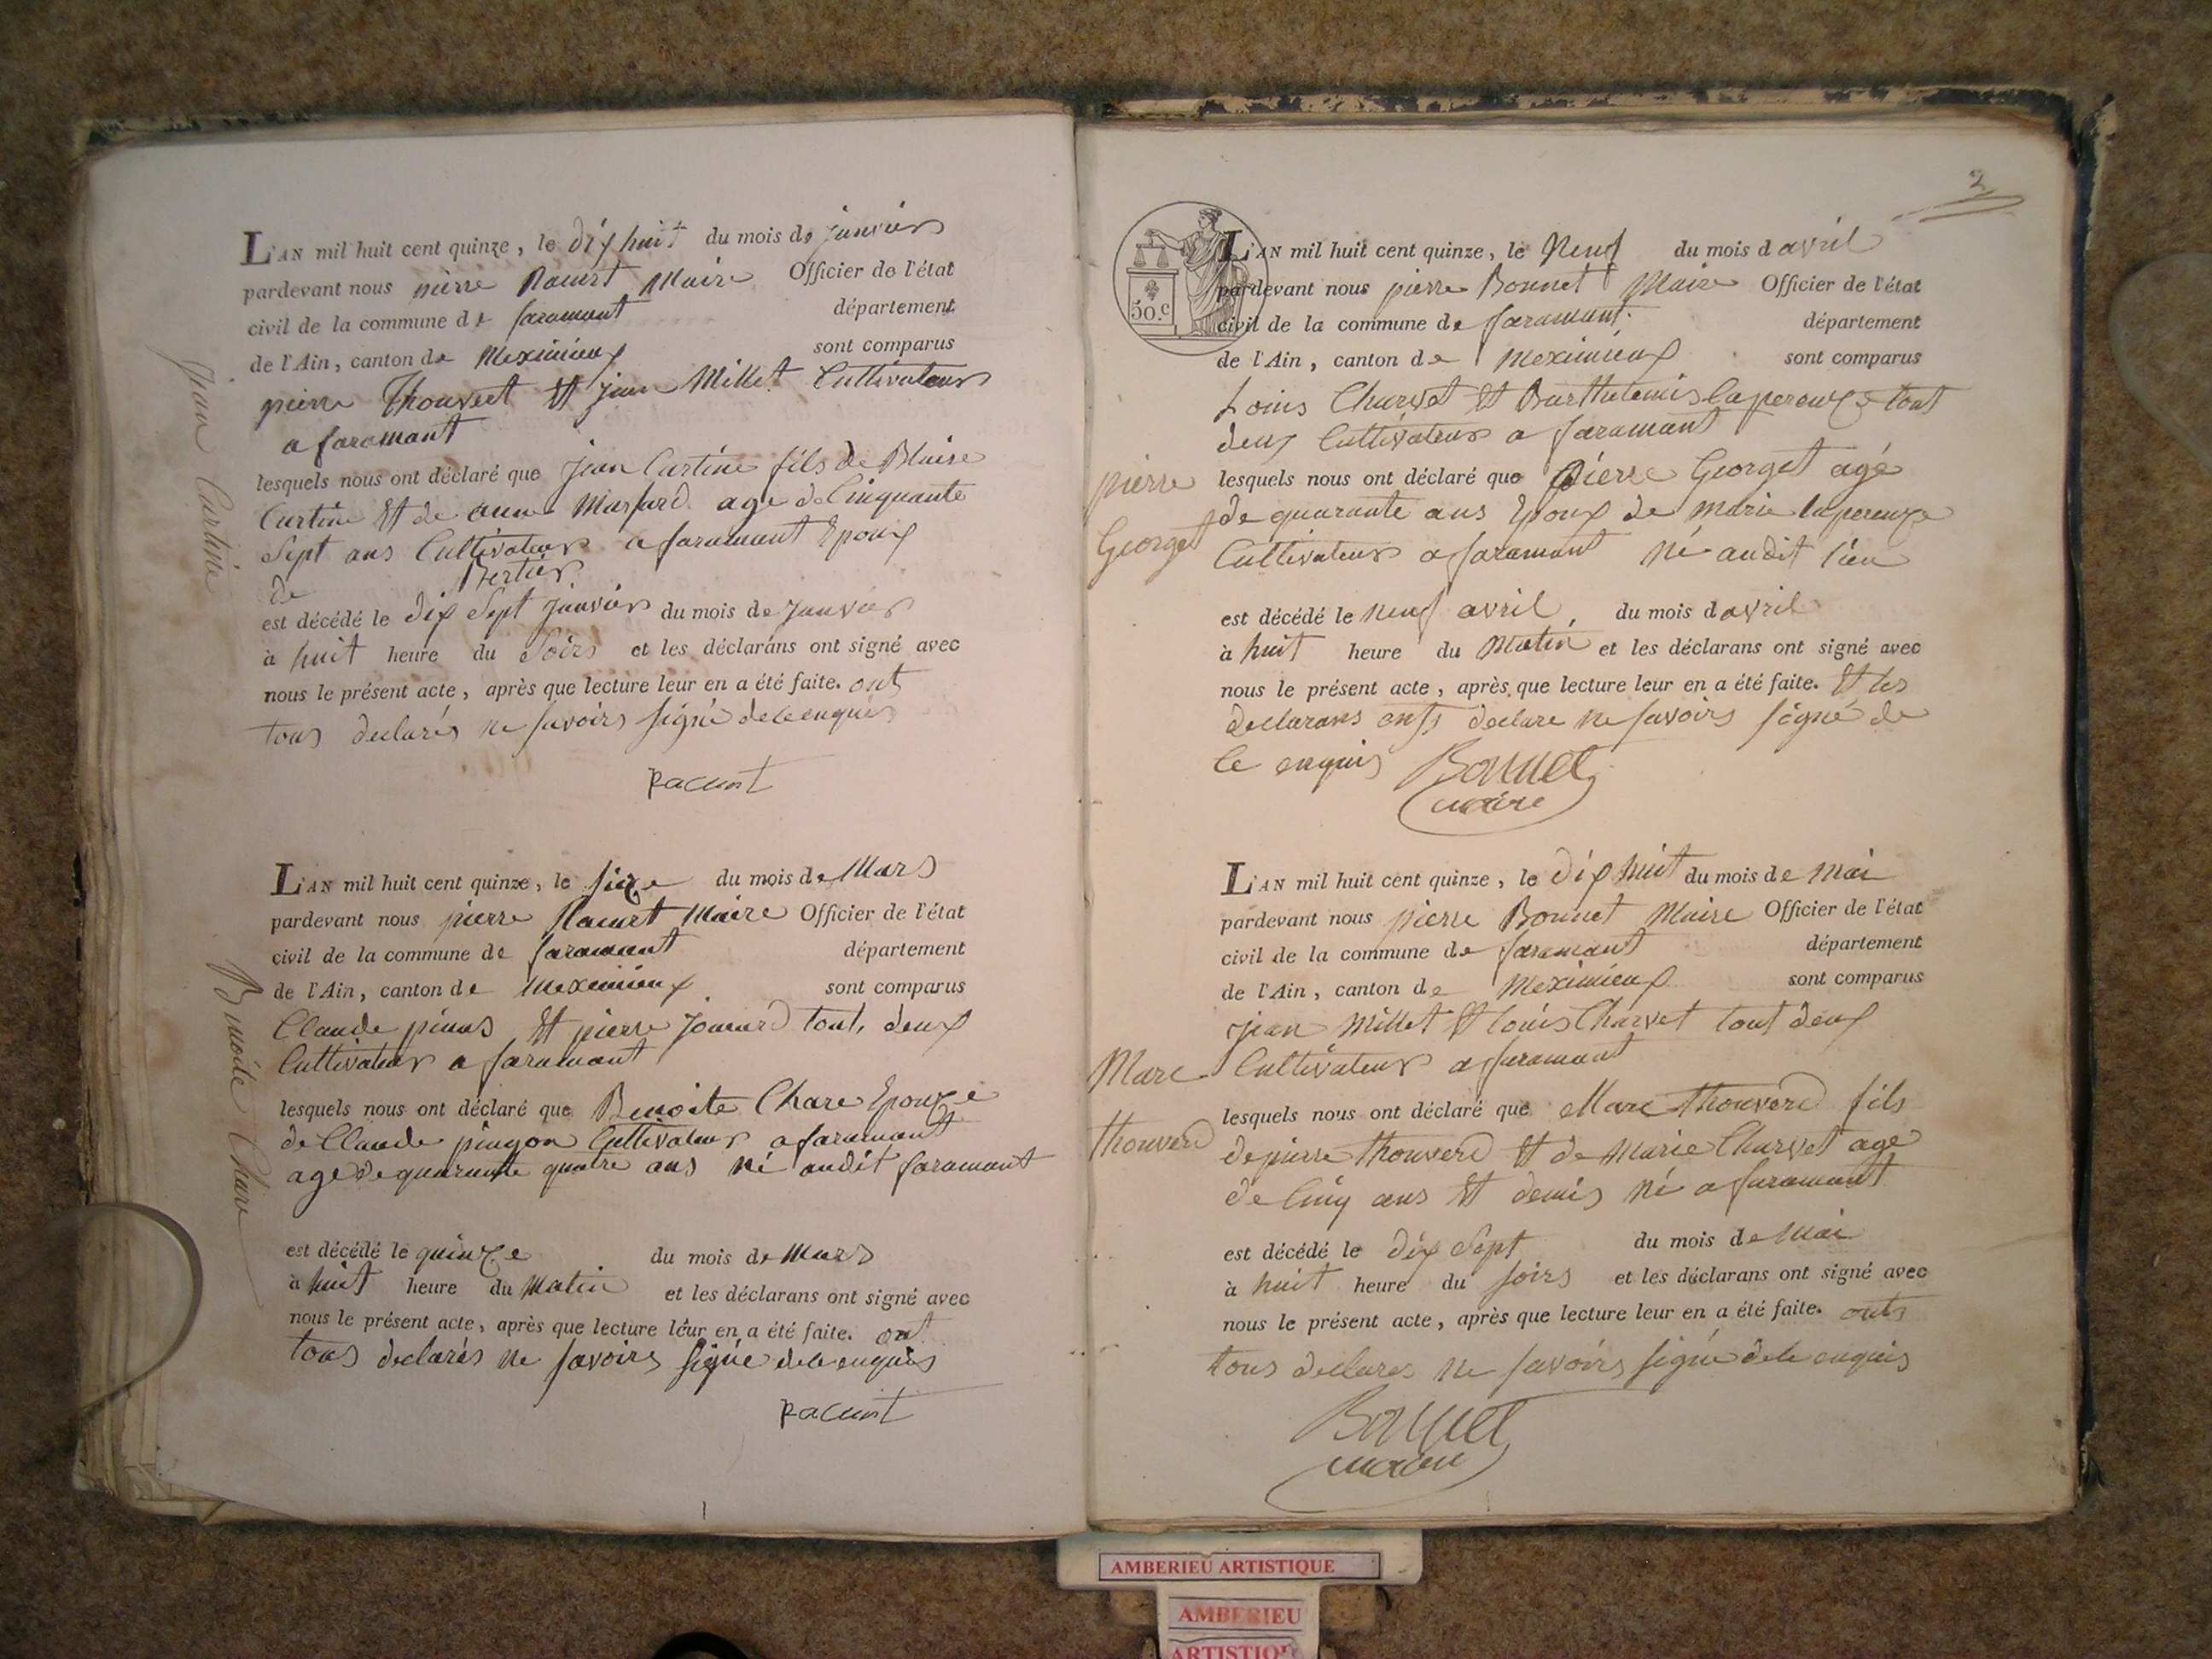 L'AN mil huit cent quinze, le dix huit du mois de janvier
pardevant nous pierre Racurt Maire Officier de l'état
civil de la commune de faramant département
de l'Ain, canton de Meximieux sont comparus
pierre Thouvert Et jean Millet Cultivateurs
a faramant
lesquels nous ont déclaré que jean Curtine fils de Blaise
Curtine Et de anne age de Cinquante
Sept ans Cultivateur a faramant Epoux
de Bertier
est décédé le dix Sept janvier du mois de janvier
à huit heure du Soirs et les déclarans ont signé avec
nous le présent acte, après que lecture leur en a été faite. ont
tous declarés ne savoirs signé de le enquis
Racurt
Jean Curtine
L'AN mil huit cent quinze, le sieze du mois de Mars
pardevant nous pierre Racurt Maire Officier de l'état
civil de la commune de faramant département
de l'Ain, canton de Meximieux sont comparus
Claude Et pierre tout deux
Cultivateur a faramant
lesquels nous ont déclaré que Benoite Chare Epouze
de Claude pingon Cultivateur a faramant
age de quarante quatre ans né audit faramant
est décédé le quinze du mois de Mars
à huit heure du Matin et les déclarans ont signé avec
nous le présent acte, après que lecture leur en a été faite. ont
tous declarés ne savoirs signé de le enquis
Racurt
2
50.c
L'AN mil huit cent quinze, le Neuf du mois d avril
pardevant nous pierre Bonnet Maire Officier de l'état
civil de la commune de faramant. département
de l'Ain, canton de Meximieux sont comparus
Louis Charvet Et Barthelemis laperouze tout
deux Cultivateur a faramant
pierre Georget
lesquels nous ont déclaré que Pierre Georget agé
de quarante ans Epoux de marie laperouze
Cultivateur a faramant Né audit lieu
est décédé le neuf avril du mois d avril
à huit heure du Matin et les déclarans ont signé avec
nous le présent acte, après que lecture leur en a été faite. Et les
declarans onts declare ne savoirs signé de
le enquis Bonnet
maire
L'AN mil huit cent quinze, le dix huit du mois de mai
pardevant nous pierre Bonnet Maire Officier de l'état
civil de la commune de faramant département
de l'Ain, canton de Meximieux sont comparus
jean Millet Et louis Charvet tout deux
Cultivateur a faramant
Marc
thouverd
lesquels nous ont déclaré que Marc thouverd fils
de pierre thouverd Et de Marie Charvet age
de Cinq ans Et demis né a faramant
est décédé le dix Sept du mois de mai
à huit heure du soirs et les déclarans ont signé avec
nous le présent acte, après que lecture leur en a été faite. onts
tous declares ne savoirs signé de le enquis
Bonnet
maire
AMBERIEU ARTISTIQUE
AMBERIEU